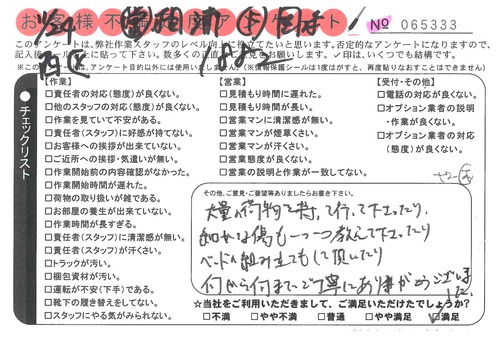 お客様不満度アンケート
№ 065333
このアンケートは、弊社作業スタッフのレベル向上に役立てたいと思います。否定的なアンケートになりますので、
記入後シールを上に貼って下さい。数多くの正直なご意見をお願いします。✓印は、いくつでも結構です。
※このアンケートは、アンケート目的以外には使用いたしません。(※情報保護シールは1度はがすと、再度貼りなおすことはできません)
チェックリスト
【作業】
□責任者の対応(態度)が良くない。
□他のスタッフの対応(態度)が良くない。
□作業を見ていて不安がある。
□責任者(スタッフ)に好感が持てない。
□お客様への挨拶が出来ていない。
□ご近所への挨拶・気遣いが無い。
□作業開始前の内容確認がなかった。
□作業開始時間が遅れた。
□荷物の取り扱いが雑である。
□お部屋の養生が出来ていない。
□作業時間が長すぎる。
□責任者(スタッフ)に清潔感が無い。
□責任者(スタッフ)が汗くさい。
□トラックが汚い。
□梱包資材が汚い。
□運転が不安(下手)である。
□靴下の履き替えをしてない。
□スタッフにやる気がみられない。
【営業】
□見積もり時間に遅れた。
□見積もり時間が長い。
□営業マンに清潔感が無い。
□営業マンが煙草くさい。
□営業マンが汗くさい。
□営業態度が良くない。
□営業の説明と作業が一致してない。
【受付・その他】
□電話の対応が良くない。
□オプション業者の説明
・作業が良くない。
□オプション業者の対応
(態度)が良くない。
その他、ご意見・ご要望等ありましたらお書き下さい。
大量の荷物を持って行って下さったり、
細かな傷も一つ一つ教えて下さったり
ベッドの組み立てもして頂いたり
何から何までご丁寧にありがとうございました
☆当社をご利用いただきまして、ご満足いただけたでしょうか?
□不満 □やや不満 □普通 □やや満足 ☑満足